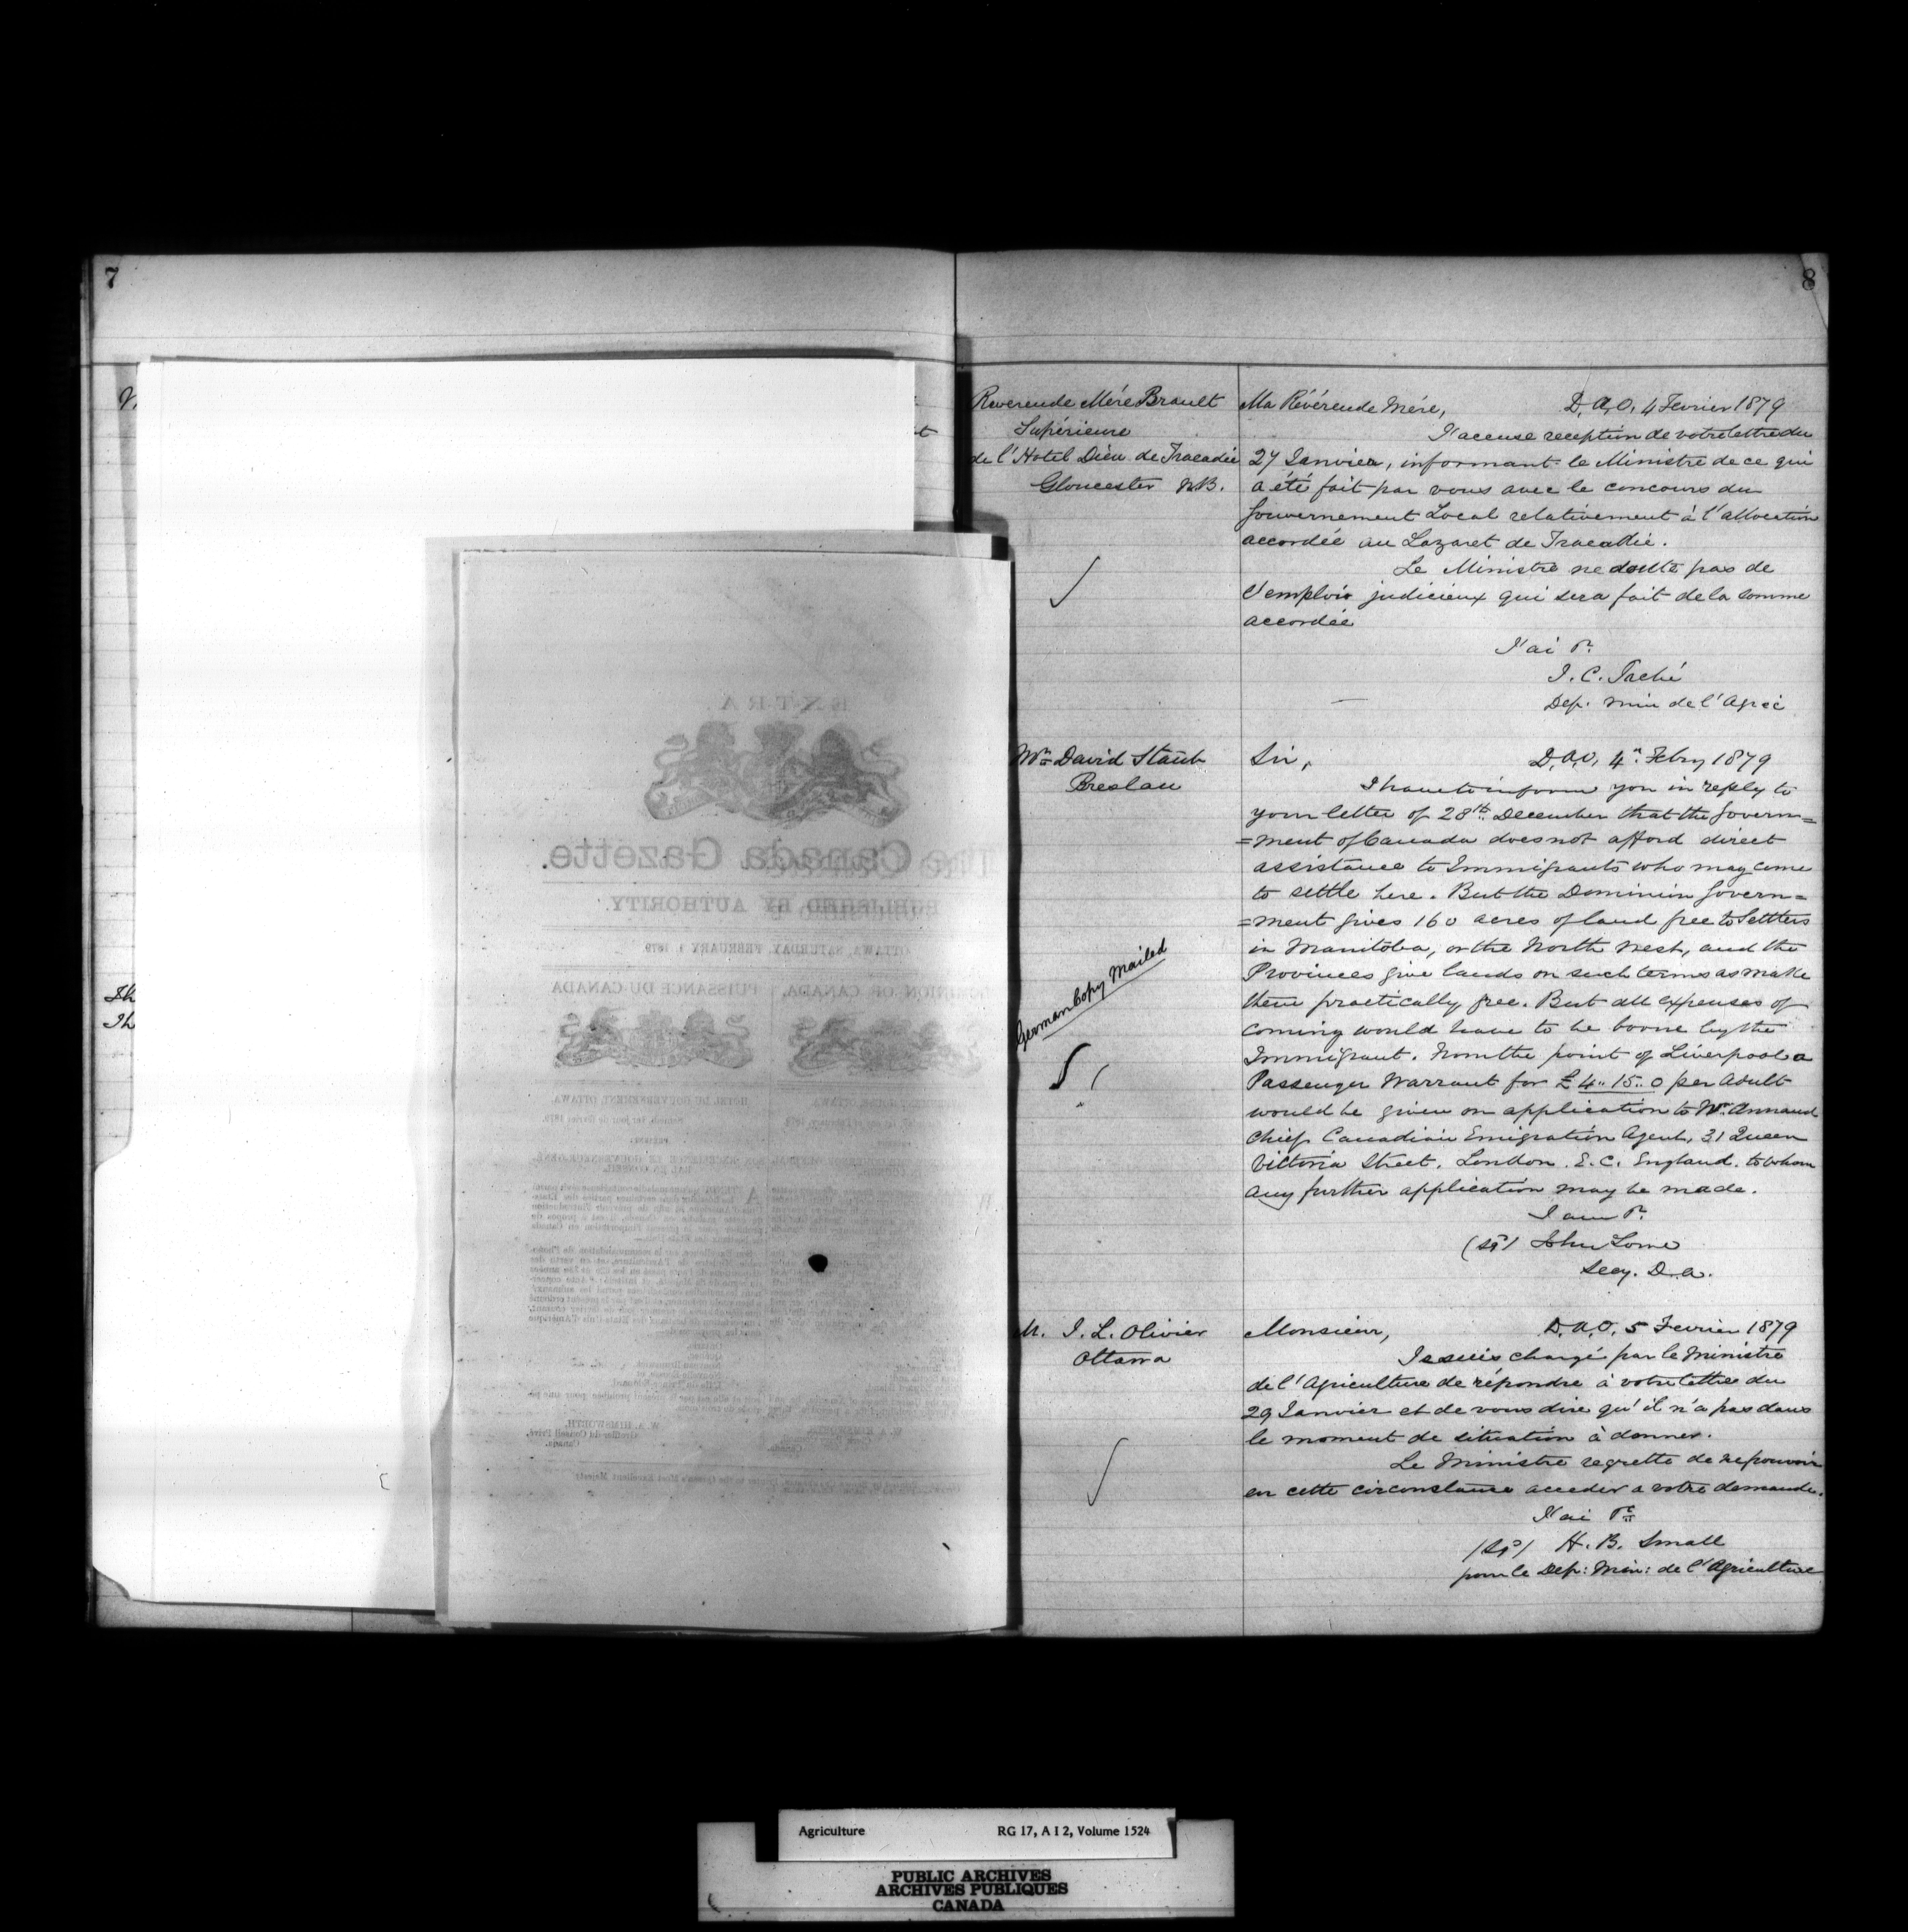 7
8
Reverende Mére Brault
Supérieure
de l'Hotel Dieu de Tracadie
Gloucester N.B.
Ma Révérende Mére, D.A.O. 4 Fevrier 1879
J'accuse reception de votre lettre du
27 Janvier, informant le Ministre de ce qui
a été fait par vous avec le concours du
Gouvernement Local relativement à l'allocation
accordée au Lazaret de Tracadie.
Le Ministre ne doute pas de
l'emploi judicieux qui sera fait de la somme
accordée
J'ai &c.
J. C. Taché
Dep. min de l'Agric
Mr David Staub
Breslau
German Copy Mailed
Sir, D.A.O. 4th Febry 1879
I have to inform you in reply to
your letter of 28th December that the Govern=
=ment of Canada does not afford direct
assistance to Immigrants who may come
to settle here. But the Dominion Govern=
=ment gives 160 acres of land free to Settlers
in Manitoba, or the North West, and the
Provinces give lands on such terms as make
them practically free. But all expenses of
coming would have to be borne by the
Immigrant. From the point of Liverpool a
Passenger Warrant for £4..15..0 per Adult
would be given on application to Mr. Annand
Chief Canadian Emigration Agent, 31 Queen
Victoria Street. London. E.C. England. to whom
any further application may be made.
I am &c.
(sg) John Lowe
Secy. D.A.
M. J. L. Olivier
Ottawa
Monsieur, D.A.O. 5 Fevrier 1879
Je suis chargé par le Ministre
de l'Agriculture de répondre à votre lettre du
29 Janvier et de vous dire qu'il n'a pas dans
le moment de situation à donner.
Le Ministre regrette de ne pouvoir
en cette circonstance acceder a votre demande.
J'ai &c
(sg) H. B. Small
pour le Dep: Min: de l'Agriculture
EXTRA.
The Canada Gazette.
PUBLISHED BY AUTHORITY.
OTTAWA, SATURDAY, FEBRUARY 1, 1879
DOMINION OF CANADA,
PUISSANCE DU CANADA
HOTEL DU GOUVERNEMENT, OTTAWA
W. A. HIMSWORTH,
Greffier du Conseil Privé,
Canada.
Agriculture RG 17, A I 2, Volume 1524
PUBLIC ARCHIVES
ARCHIVES PUBLIQUES
CANADA